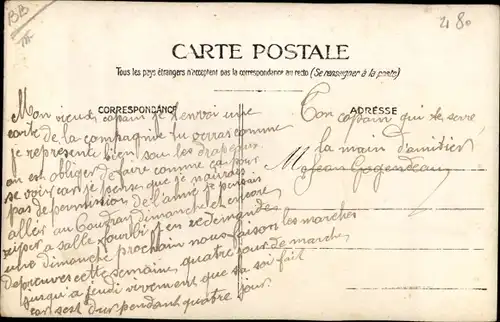 BB
28.
CARTE POSTALE
Tous les pays étrangers n'acceptent pas la correspondance au recto (Se renseigner à la poste)
CORRESPONDANCE
Mon vieux copain je t'envoi une
carte de la compagnie tu verras comme
je represente bien sou les drapeux
on est obliger de faire comme ca pour
se voir car je pense que je n'aurais
pas de permission de l'anné je pensais
aller au Coudray dimanche et encore
a salle fourbi et en redemandes
une dimanche prochain nous faison les marches
depreuves cette semaine quatre jour de marches
jusqu'a jeudi vivement que sa soi fait
car sest dur pendant quatre jour.
ADRESSE
Ton copain qui te serre
la main d'amitier
Jean Gagendeau